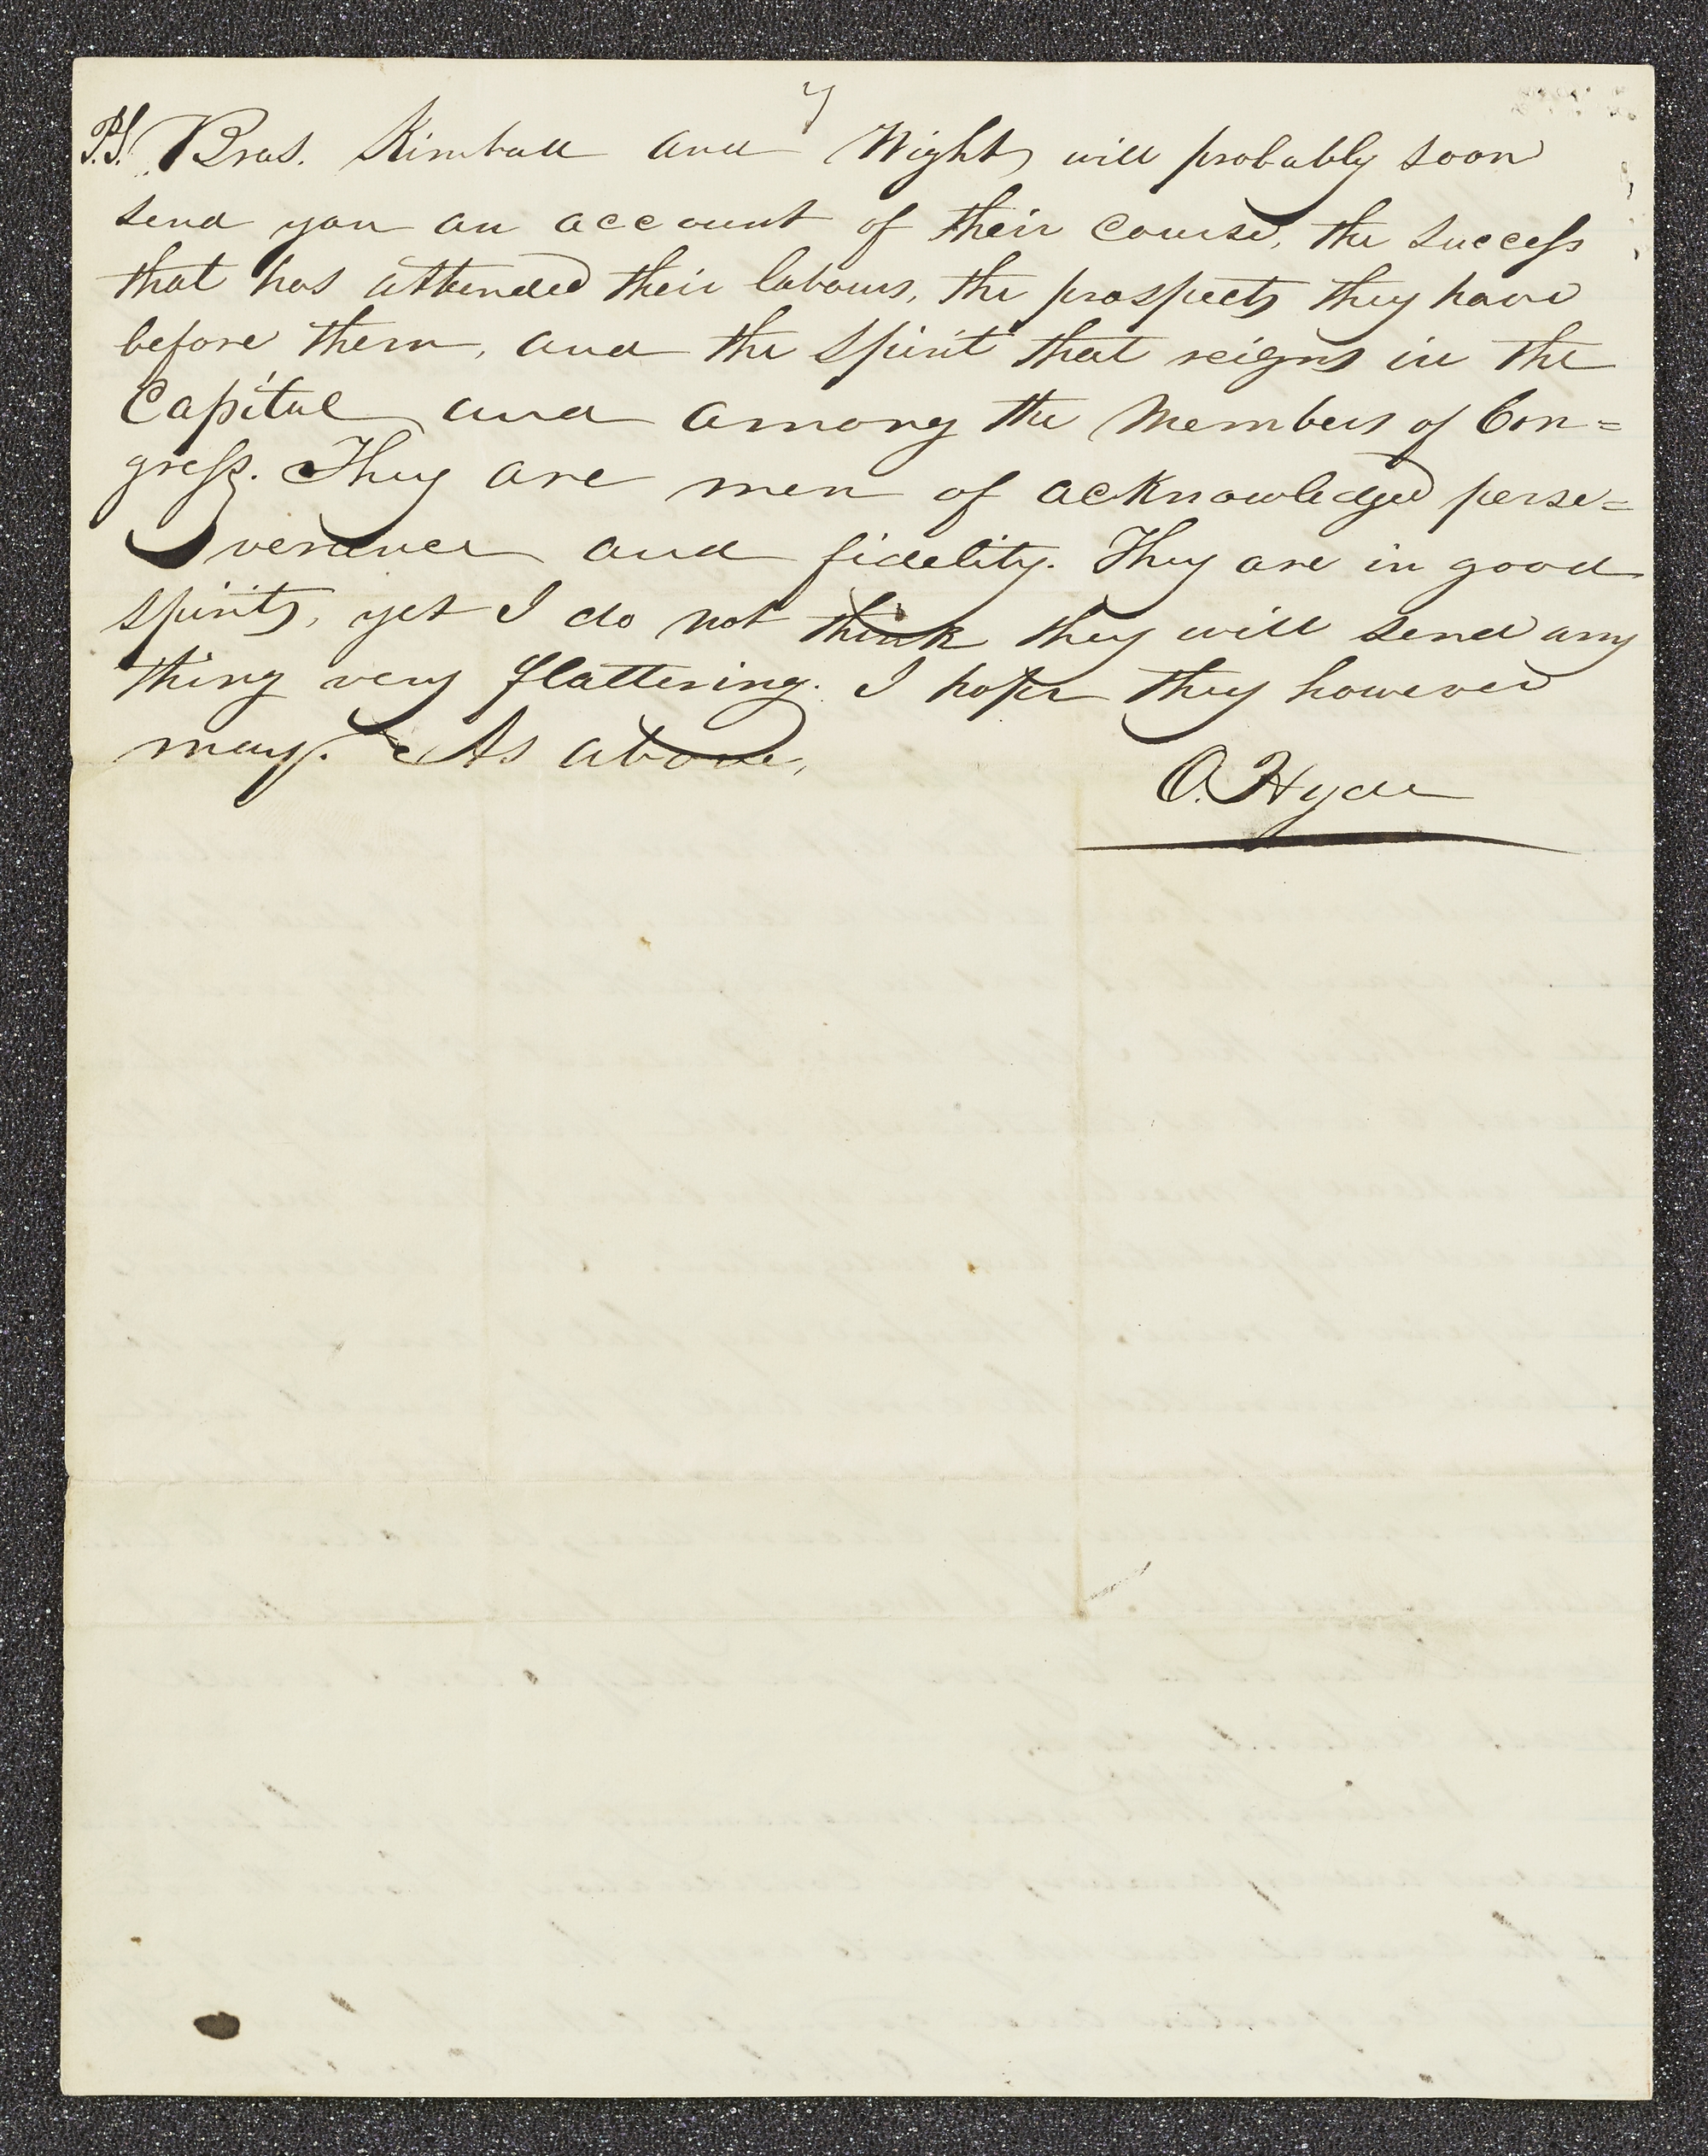 7
P.S. Bros. Kimball and Wight, will probably soon
send you an account of their course, the success
that has attended their labours, the prospects they have
before them, and the spirit that reigns in the
Capital and among the Members of Con=
gress. They are men of acknowledged perse=
verence and fidelity. They are in good
spirits, yet I do not think they will send any
thing very flattering. I hope they however
may. As above,
O. Hyde